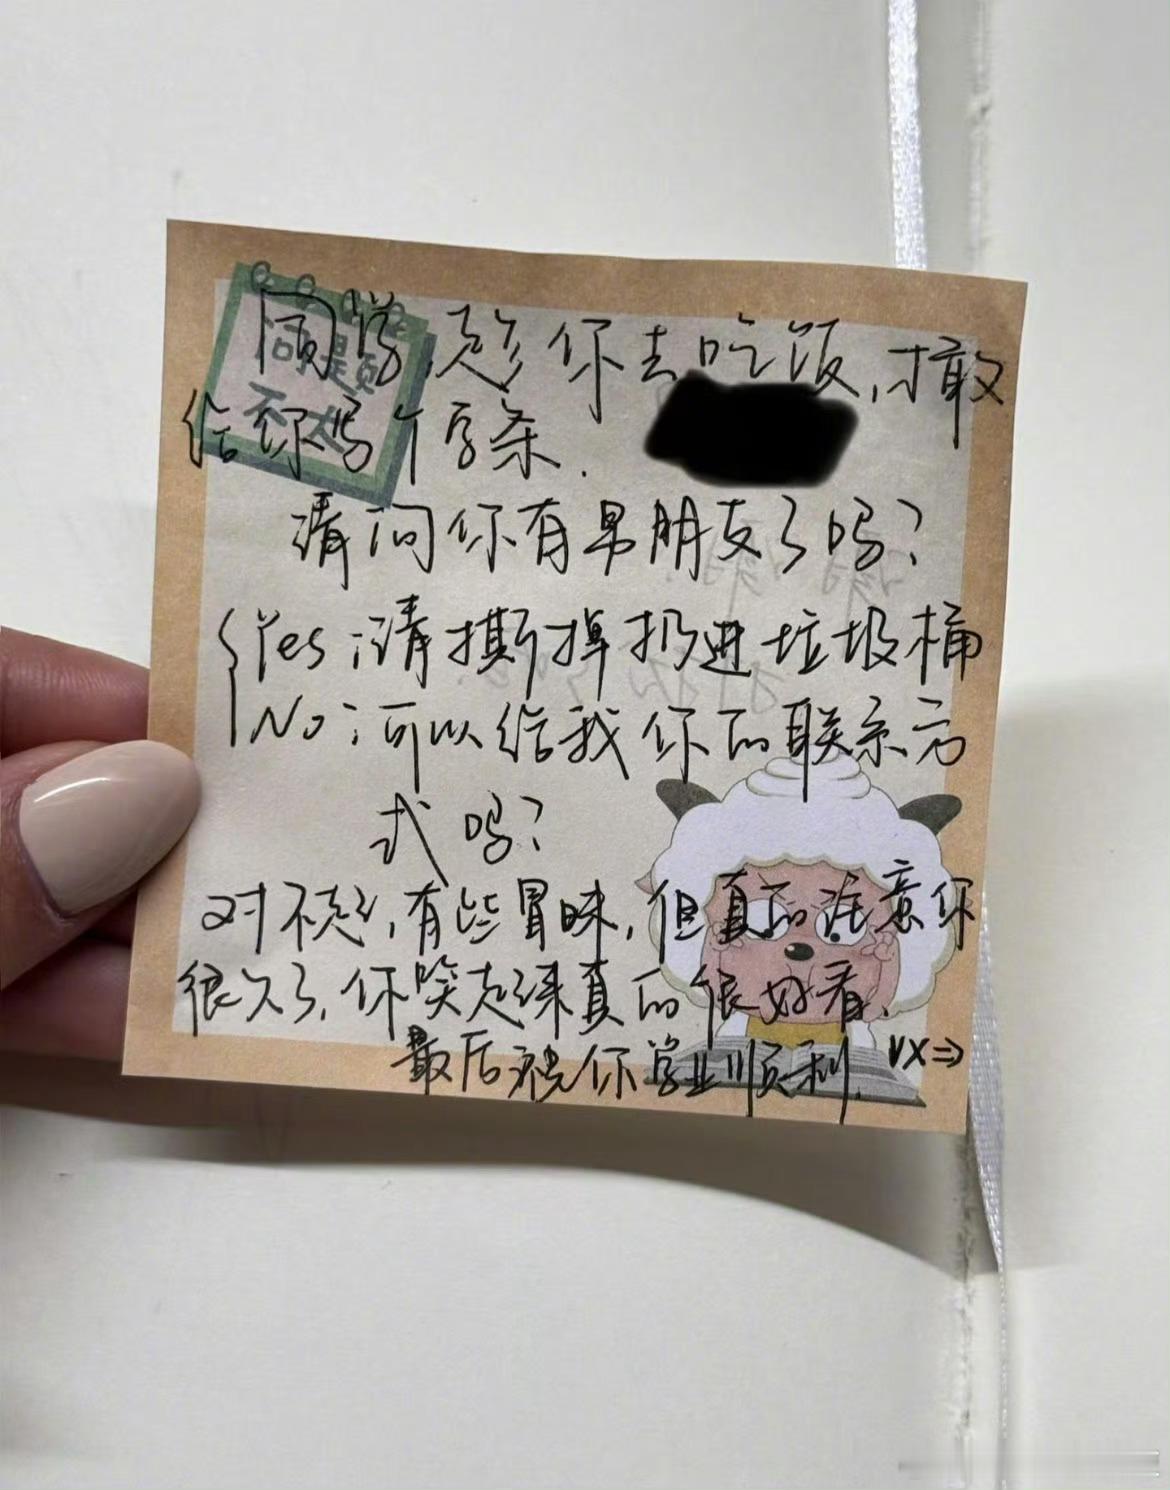 同学,趁你去吃饭,才敢
给你写个字条.
请问你有男朋友了吗?
Yes:请撕掉扔进垃圾桶
No:可以给我你的联系方
式吗?
对不起,有些冒昧,但真的注意你
很久了,你笑起来真的很好看.
最后祝你学业顺利. VX⇒